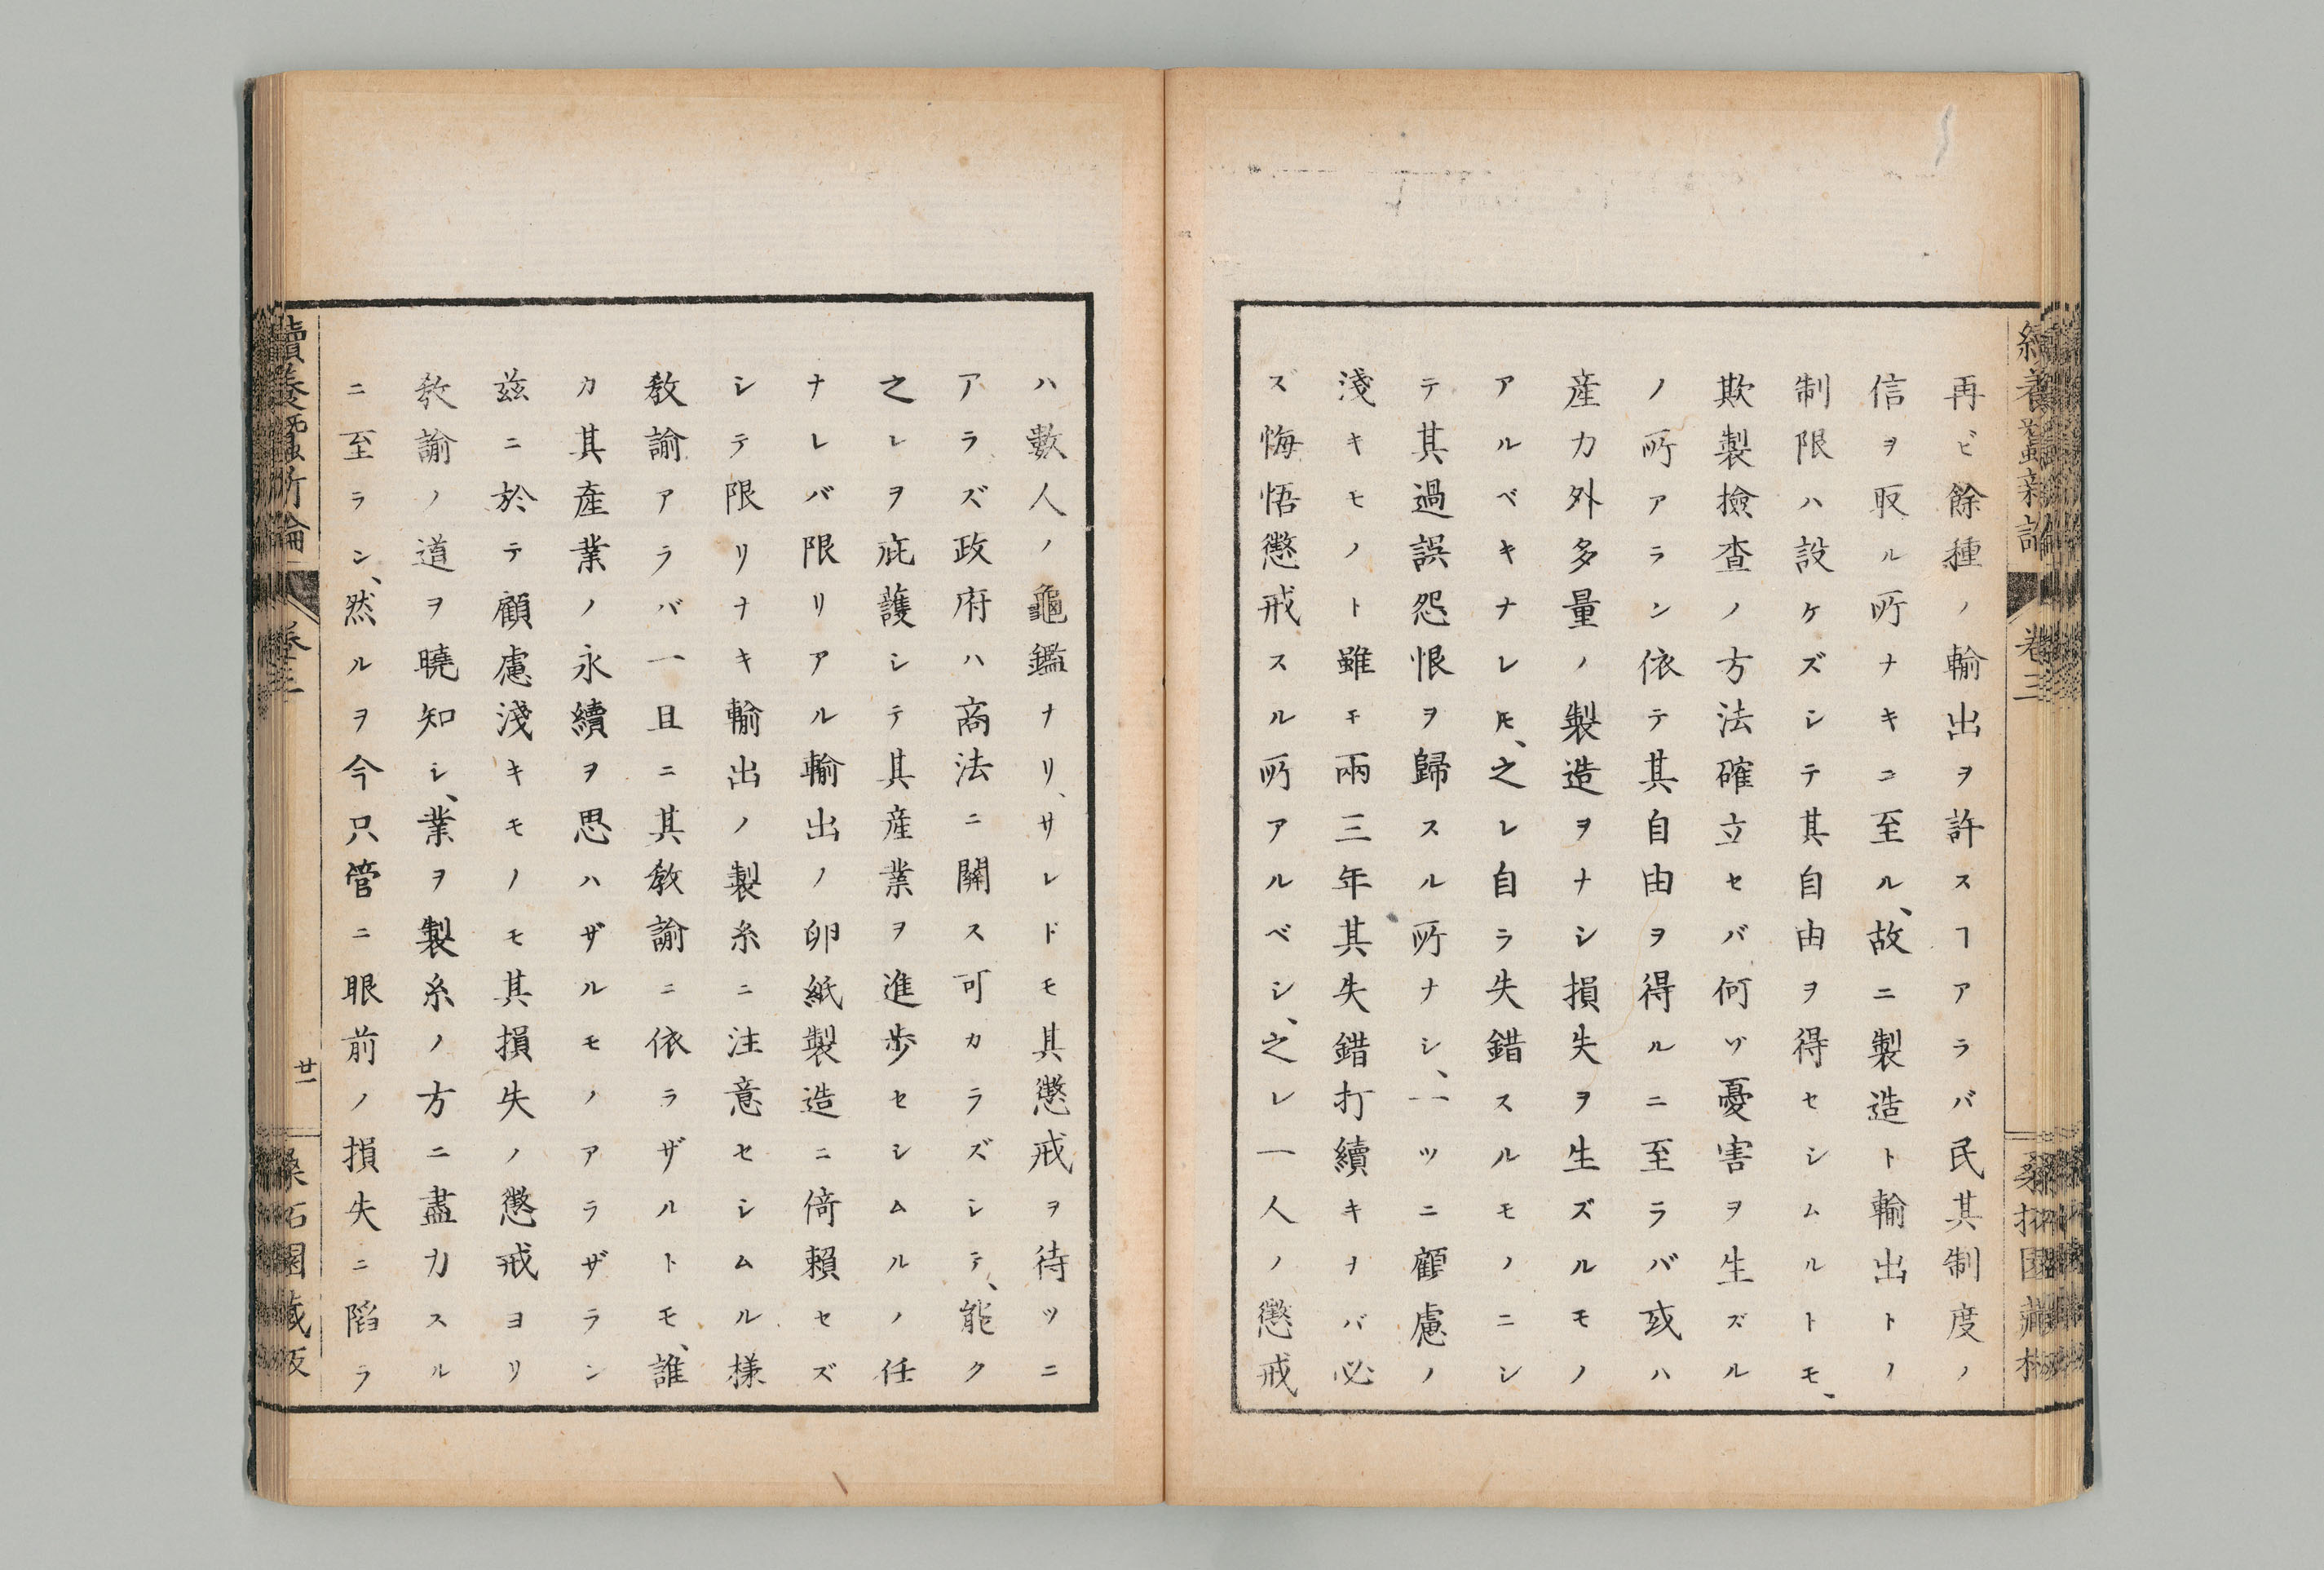 續養蠶新論
卷三
桑柘園藏板
再ビ餘種ノ輸出ヲ許スヿアラバ民其制度ノ
信ヲ取ル所ナキニ至ル、故ニ製造ト輸出トノ
制限ハ設ケズシテ其自由ヲ得セシムルトモ、
欺製撿査ノ方法確立セバ何ゾ憂害ヲ生ズル
ノ所アラン依テ其自由ヲ得ルニ至ラバ或ハ
産力外多量ノ製造ヲナシ損失ヲ生ズルモノ
アルベキナレ𪜈、之レ自ラ失錯スルモノニシ
テ其過誤怨恨ヲ歸スル所ナシ、一ツニ顧慮ノ
淺キモノト雖モ兩三年其失錯打續キナバ必
ズ悔悟懲戒スル所アルベシ、之レ一人ノ懲戒
ハ數人ノ龜鑑ナリ、サレドモ其懲戒ヲ待ツニ
アラズ政府ハ商法ニ關ス可カラズシテ、能ク
之レヲ庇護シテ其産業ヲ進歩セシムルノ任
ナレバ限リアル輸出ノ卵紙製造ニ倚賴セズ
シテ限リナキ輸出ノ製糸ニ注意セシムル樣
敎諭アラバ一且ニ其敎諭ニ依ラザルトモ、誰
カ其產業ノ永續ヲ思ハザルモノアラザラン
茲ニ於テ顧慮淺キモノモ其損失ノ懲戒ヨリ
敎諭ノ道ヲ曉知シ、業ヲ製糸ノ方ニ盡力スル
ニ至ラン、然ルヲ今只管ニ眼前ノ損失ニ陷ラ
續養蠶新論
卷三
廿一
桑柘園藏板